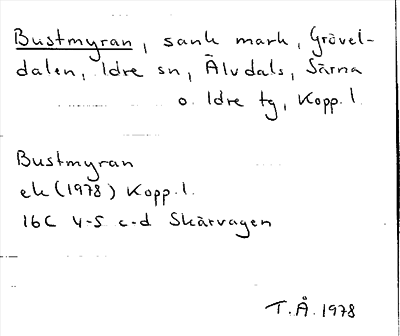 Bustmyran, sank mark, Grövel-
dalen, Idre sn, Älvdals, Särna
o. Idre tg, Kopp.l.
Bustmyran
ek (1978) Kopp.l.
16C 4-5 c-d Skärvagen
T.Å. 1978